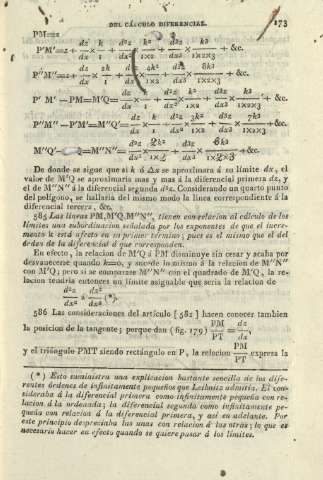 DEL CÁLCULO DIFERENCIAL. 173
PM=z
P'M'=z+ dz/dx × k/1 + d²z/dx² × k²/1×2 + d3z/dx3 × k3/1×2×3 + &c.
P''M''=z+ dz/dx × 2k/1 + d²z/dx² × 4k²/1×2 + d3z/dx3 × 8k3/1×2×3 + &c.
P'M'—PM=M'Q= dz/dx × k/1 + d²z/dx² × k²/1×2 + d3z/dx3 × k3/1×2×3 + &c.
P''M''—P'M'=M''Q'= dz/dx × k/1 + d²z/dx² × 3k²/1×2 + d3z/dx3 × 7k3/1×2×3 + &c.
M''Q'— =M''N''= d²z/dx² × 2k²/1×2 + d3z/dx3 × 6k3/1×2×3 + &c.
De donde se sigue que si k ó Δx se aproximará á su límite dx, el
valor de M'Q se aproximaria mas y mas á la diferencial primera dz, y
el de M''N'' á la diferencial segunda d²z. Considerando un quarto punto
del polígono, se hallaría del mismo modo la línea correspondiente á la
diferencial tercera, &c.
585 Las líneas PM, M'Q, M''N'', tienen con relacion al cálculo de los
límites una subordinacion señalada por los exponentes de que el incre-
mento k está afecto en su primer término; pues es el mismo que el del
órden de la diferencial á que corresponden.
En efecto, la relacion de M'Q á PM disminuye sin cesar y acaba por
desvanecerse quando k=0, y sucede lo mismo á la relacion de M''N''
con M'Q; pero si se comparase M''N'' con el quadrado de M'Q, la re-
lacion tendria entonces un límite asignable que seria la relacion de
d²z/dx² á dz²/dx² (*).
586 Las consideraciones del artículo [582] hacen conocer tambien
la posicion de la tangente; porque dan (fig. 179) PM/PT = dz/dx,
y el triángulo PMT siendo rectángulo en P, la relacion PM/PT expresa la
(*) Esto suministra una explicacion bastante sencilla de los dife-
rentes órdenes de infinitamente pequeños que Leibnitz admitia. El con-
sideraba á la diferencial primera como infinitamente pequeña con re-
lacion á la ordenada; la diferencial segunda como infinitamente pe-
queña con relacion á la diferencial primera, y así en adelante. Por
este principio despreciaba las unas con relacion á las otras; lo que es
necesario hacer en efecto quando se quiere pasar á los límites.